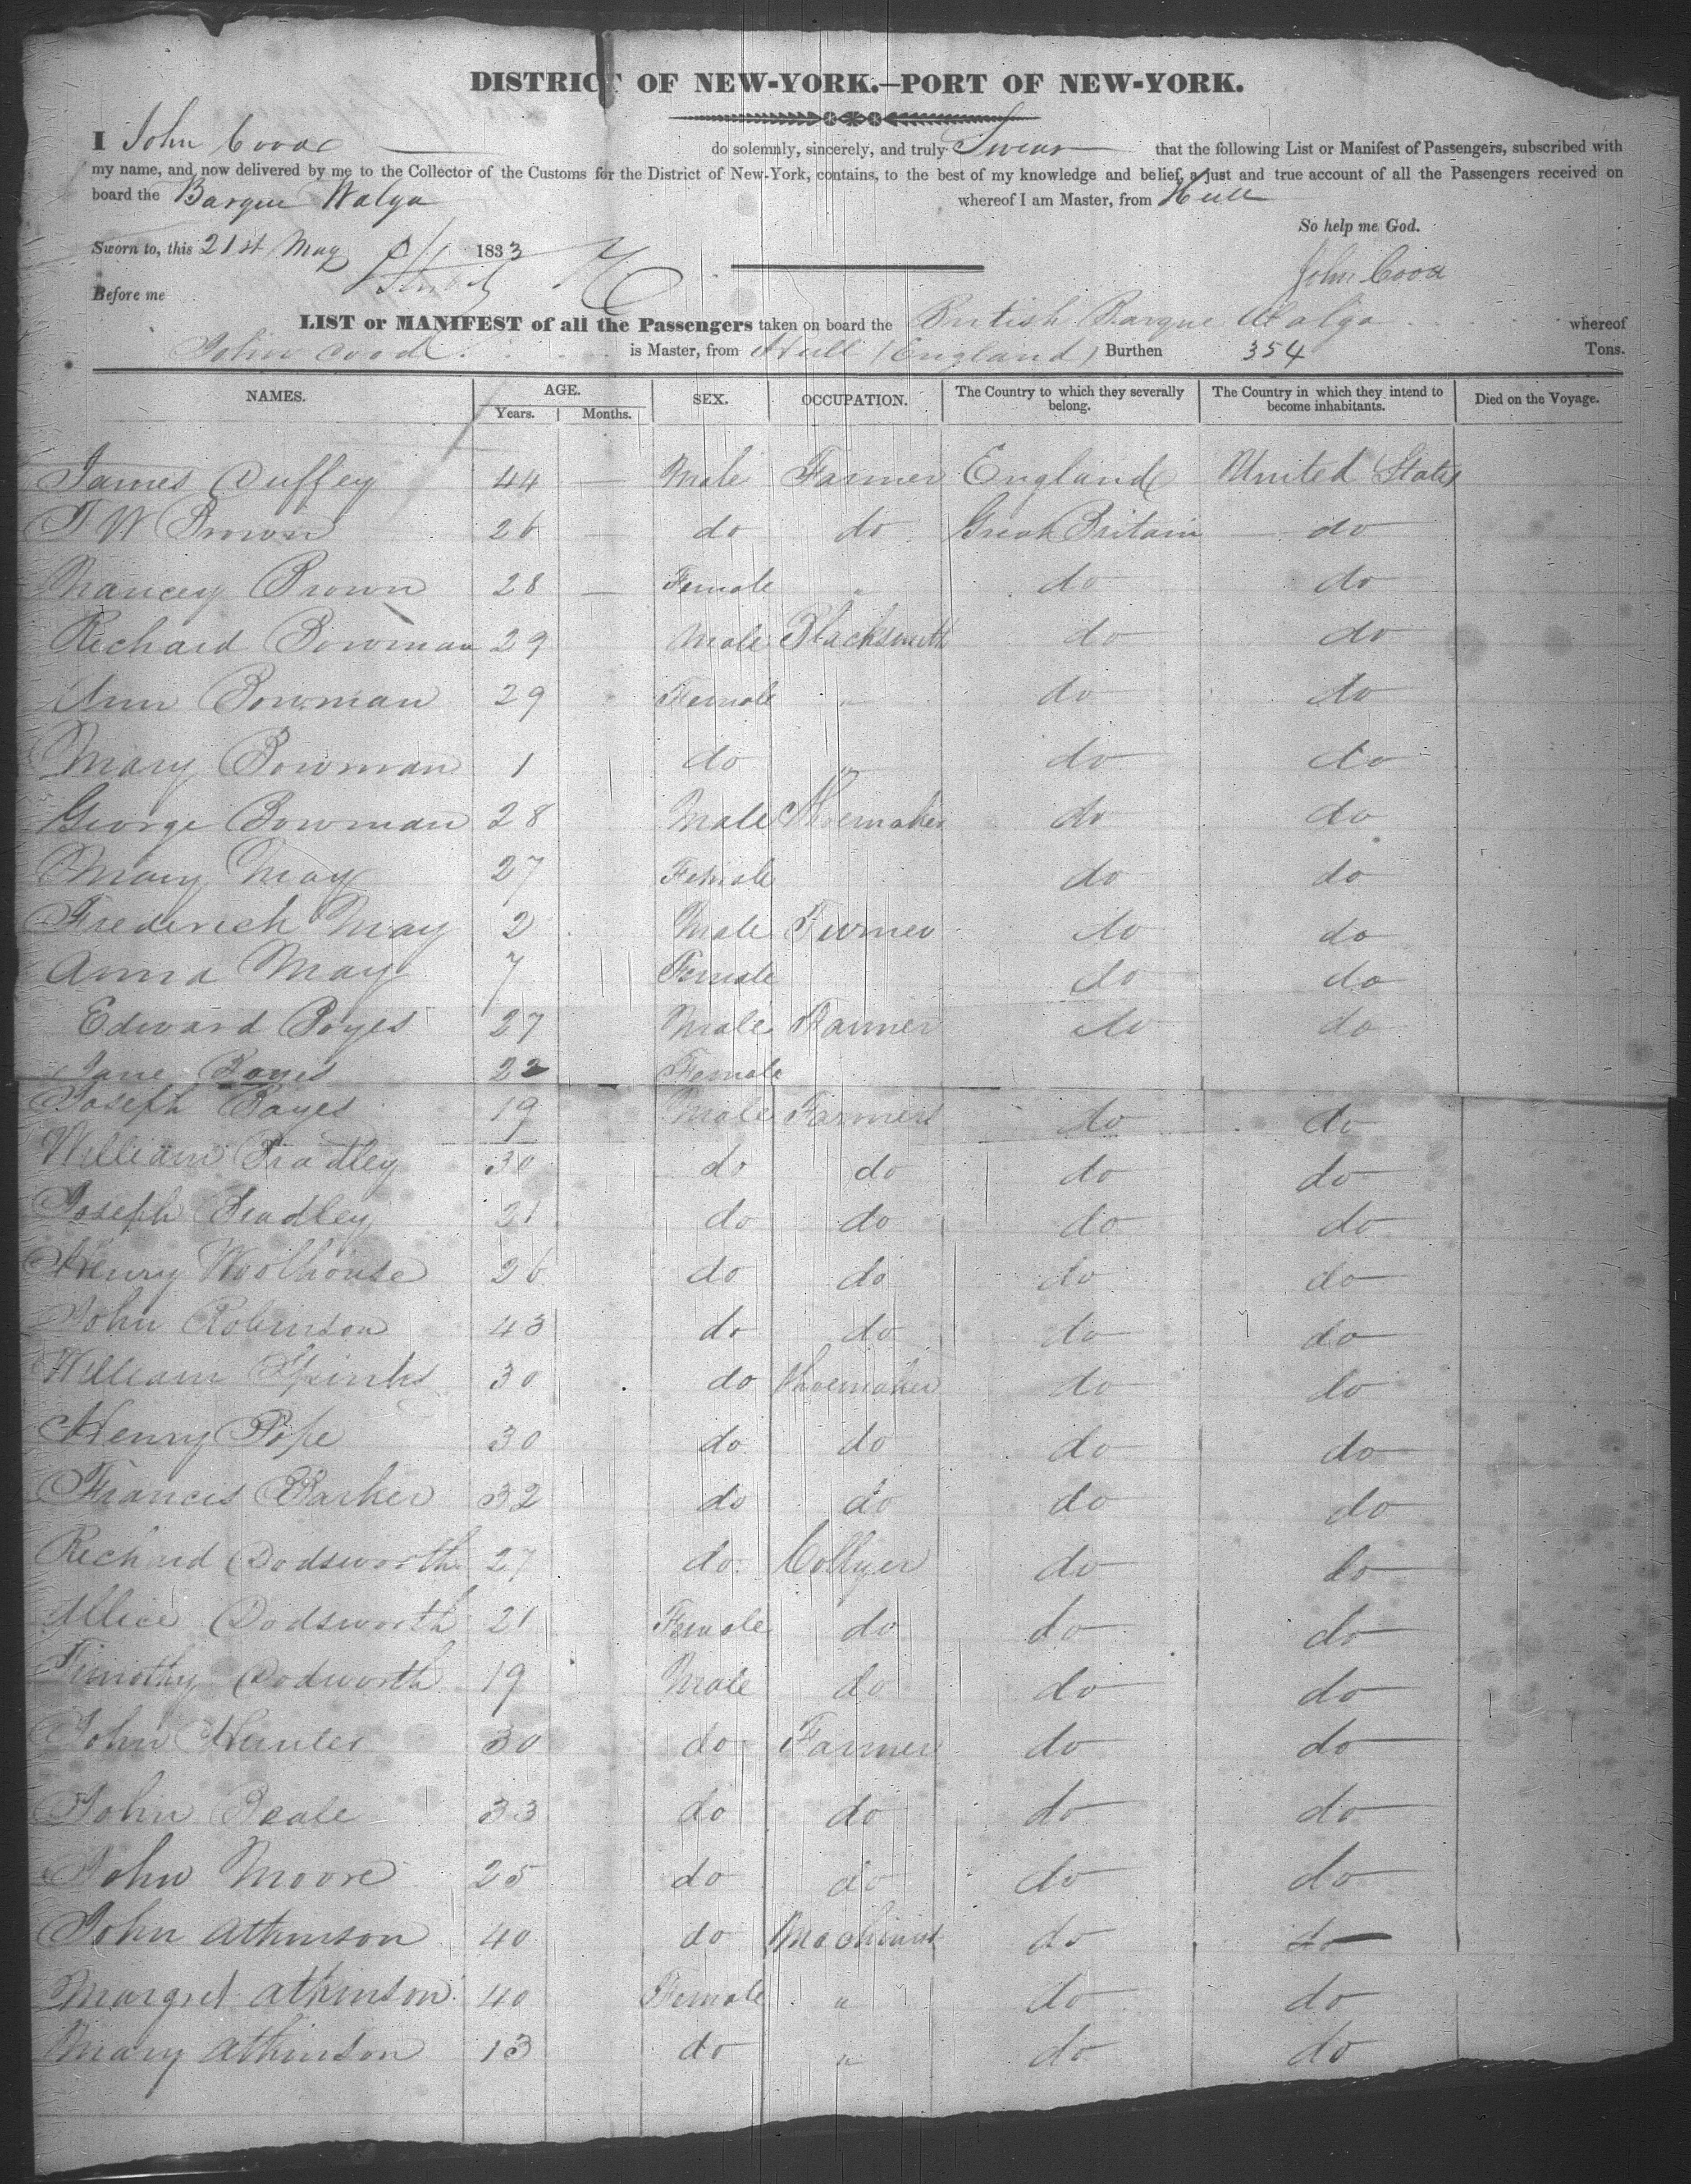 DISTRICT OF NEW-YORK.—PORT OF NEW-YORK.
I John do solemnly, sincerely, and truly Swear that the following List or Manifest of Passengers, subscribed with
my name, and now delivered by me to the Collector of the Customs for the District of New-York, contains, to the best of my knowledge and belief, a just and true account of all the Passengers received on
board the Barque Walga whereof I am Master, from Hull
So help me God.
Sworn to, this 21st May 1833
John
Before me
LIST or MANIFEST of all the Passengers taken on board the British Barque Walga whereof
John is Master, from Hull (England) Burthen 354 Tons.
NAMES. AGE. SEX. OCCUPATION. The Country to which they severally belong. The Country in which they intend to become inhabitants. Died on the Voyage.
Years. Months.
James Duffey 44 — Male Farmer England United States
T W Brown 26 — do do Great Britain do
Nancey Brown 28 — Female " do do
Richard Bowman 29 Male Blacksmith do do
Ann Bowman 29 Female " do do
Mary Bowman 1 do " do do
George Bowman 28 Male Shoemaker do do
Mary May 27 Female do do
Frederick May 2 Male do do
Anna May 7 Female do do
Edward Boyes 27 Male Farmer do do
Jane Boyes 22 Female
Joseph Boyes 19 Male Farmers do do
William Bradley 30 do do do do
Joseph Bradley 21 do do do do
Henry Woolhouse 26 do do do do
John Robinson 43 do do do do
William Spinks 30 do Shoemaker do do
Henry Pope 30 do do do do
Francis Barker 32 do do do do
Richard Dodsworth 27 do Collyer do do
Allice Dodsworth 21 Female do do do
Timothy Dodworth 19 Male do do do
John Hunter 30 do Farmer do do
John 33 do do do do
John Moore 25 do do do do
John Atkinson 40 do Machinist do do
Margret Atkinson 40 Female " do do
Mary Atkinson 13 do " do do